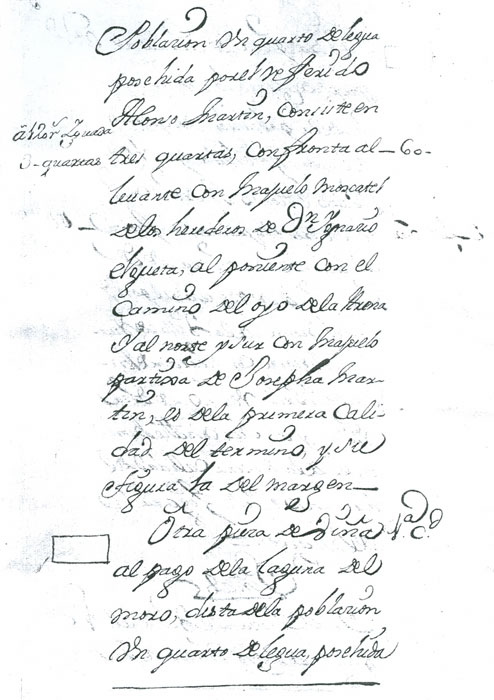 Poblazion Un quarto de legua
poschida por el referido
Alonso Martin, Consiste en
tres quartas, Confronta al – 60 –
levante con Majuelo Moscatel
de los herederos de Dn Ygnacio
elgueta, al poniente con el
Camino del oyo de la Arena
Y al norte y sur con Majuelo
partida de Josepha Mar-
tin, es de la primera Cali-
dad del termino, y su
figura la del margen
Otra pieza de Viña
al pago de la laguna del
moro, dista de la poblazion
Un quarto de legua, poschida
3 quartas